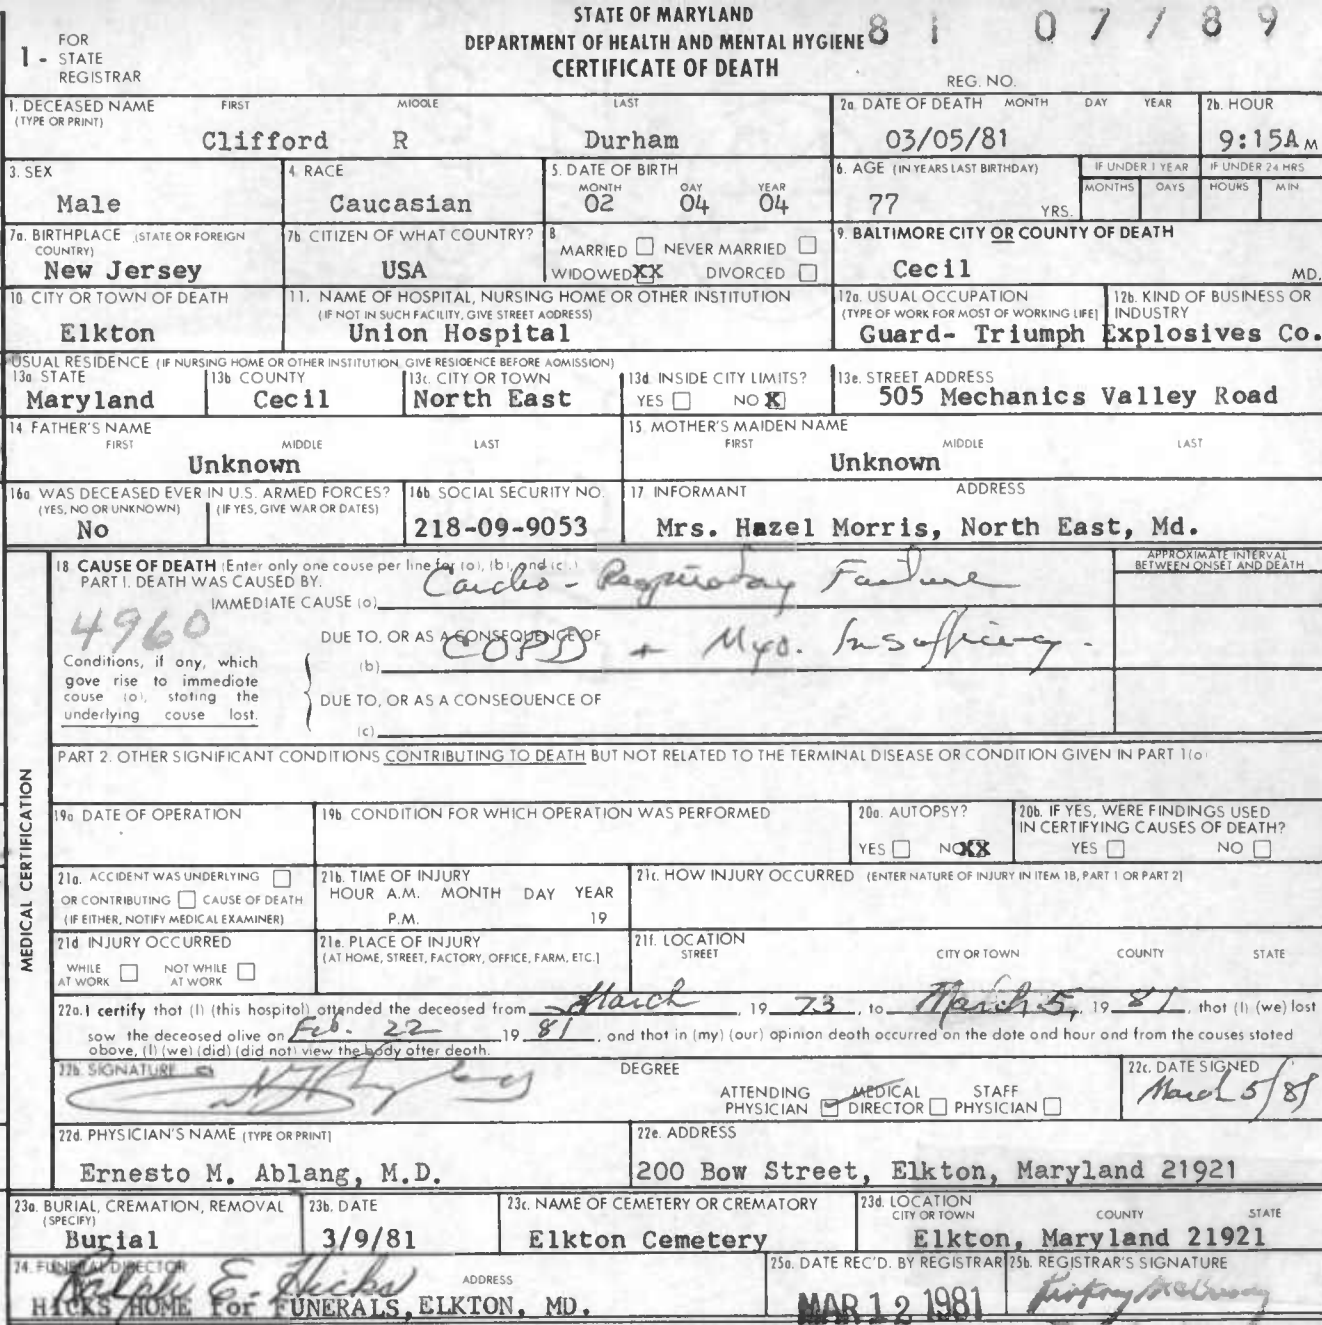 STATE OF MARYLAND
DEPARTMENT OF HEALTH AND MENTAL HYGIENE
CERTIFICATE OF DEATH
81 07189
1 - FOR STATE REGISTRAR
REG. NO.
1. DECEASED NAME (TYPE OR PRINT) FIRST MIDDLE LAST
Clifford R Durham
2a. DATE OF DEATH MONTH DAY YEAR
03/05/81
2b. HOUR
9:15A M
3. SEX
Male
4. RACE
Caucasian
5. DATE OF BIRTH
MONTH DAY YEAR
02 04 04
6. AGE (IN YEARS LAST BIRTHDAY)
77 YRS.
IF UNDER 1 YEAR
MONTHS DAYS
IF UNDER 24 HRS
HOURS MIN
7a. BIRTHPLACE (STATE OR FOREIGN COUNTRY)
New Jersey
7b. CITIZEN OF WHAT COUNTRY?
USA
8
MARRIED NEVER MARRIED
WIDOWED XX DIVORCED
9. BALTIMORE CITY OR COUNTY OF DEATH
Cecil MD.
10. CITY OR TOWN OF DEATH
Elkton
11. NAME OF HOSPITAL, NURSING HOME OR OTHER INSTITUTION
(IF NOT IN SUCH FACILITY, GIVE STREET ADDRESS)
Union Hospital
12a. USUAL OCCUPATION
(TYPE OF WORK FOR MOST OF WORKING LIFE)
12b. KIND OF BUSINESS OR INDUSTRY
Guard- Triumph Explosives Co.
USUAL RESIDENCE (IF NURSING HOME OR OTHER INSTITUTION, GIVE RESIDENCE BEFORE ADMISSION)
13a. STATE
Maryland
13b. COUNTY
Cecil
13c. CITY OR TOWN
North East
13d. INSIDE CITY LIMITS?
YES NO X
13e. STREET ADDRESS
505 Mechanics Valley Road
14. FATHER'S NAME
FIRST MIDDLE LAST
Unknown
15. MOTHER'S MAIDEN NAME
FIRST MIDDLE LAST
Unknown
16a. WAS DECEASED EVER IN U.S. ARMED FORCES?
(YES, NO OR UNKNOWN) (IF YES, GIVE WAR OR DATES)
No
16b. SOCIAL SECURITY NO.
218-09-9053
17. INFORMANT ADDRESS
Mrs. Hazel Morris, North East, Md.
MEDICAL CERTIFICATION
18. CAUSE OF DEATH (Enter only one cause per line for (a), (b), and (c).)
PART I. DEATH WAS CAUSED BY:
IMMEDIATE CAUSE (a) Cardio-Respiratory Failure
APPROXIMATE INTERVAL BETWEEN ONSET AND DEATH
4960
Conditions, if any, which gave rise to immediate cause (a), stating the underlying cause last.
DUE TO, OR AS A CONSEQUENCE OF
(b) COPD + Myo. Insufficiency.
DUE TO, OR AS A CONSEQUENCE OF
(c)
PART 2. OTHER SIGNIFICANT CONDITIONS CONTRIBUTING TO DEATH BUT NOT RELATED TO THE TERMINAL DISEASE OR CONDITION GIVEN IN PART 1(a)
19a. DATE OF OPERATION
19b. CONDITION FOR WHICH OPERATION WAS PERFORMED
20a. AUTOPSY?
YES NO XX
20b. IF YES, WERE FINDINGS USED IN CERTIFYING CAUSES OF DEATH?
YES NO
21a. ACCIDENT WAS UNDERLYING
OR CONTRIBUTING CAUSE OF DEATH
(IF EITHER, NOTIFY MEDICAL EXAMINER)
21b. TIME OF INJURY
HOUR A.M. MONTH DAY YEAR
P.M. 19
21c. HOW INJURY OCCURRED (ENTER NATURE OF INJURY IN ITEM 18, PART 1 OR PART 2)
21d. INJURY OCCURRED
WHILE AT WORK NOT WHILE AT WORK
21e. PLACE OF INJURY
(AT HOME, STREET, FACTORY, OFFICE, FARM, ETC.)
21f. LOCATION
STREET CITY OR TOWN COUNTY STATE
22a. I certify that (I) (this hospital) attended the deceased from March, 19 73, to March 5, 19 81, that (I) (we) last
saw the deceased alive on Feb. 22 19 81, and that in (my) (our) opinion death occurred on the date and hour and from the causes stated
above, (I) (we) (did) (did not) view the body after death.
22b. SIGNATURE
DEGREE
ATTENDING PHYSICIAN MEDICAL DIRECTOR STAFF PHYSICIAN
22c. DATE SIGNED
March 5/81
22d. PHYSICIAN'S NAME (TYPE OR PRINT)
Ernesto M. Ablang, M.D.
22e. ADDRESS
200 Bow Street, Elkton, Maryland 21921
23a. BURIAL, CREMATION, REMOVAL (SPECIFY)
Burial
23b. DATE
3/9/81
23c. NAME OF CEMETERY OR CREMATORY
Elkton Cemetery
23d. LOCATION
CITY OR TOWN COUNTY STATE
Elkton, Maryland 21921
24. FUNERAL DIRECTOR
Ralph E. Hicks
ADDRESS
HICKS HOME for FUNERALS, ELKTON, MD.
25a. DATE REC'D. BY REGISTRAR
MAR 12 1981
25b. REGISTRAR'S SIGNATURE